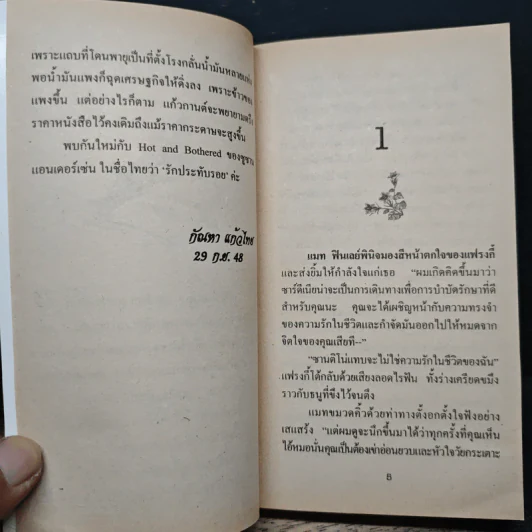 เพราะแถบที่โดนพายุเป็นที่ตั้งโรงกลั่นน้ำมันหลาย
พอน้ำมันแพงก็ฉุดเศรษฐกิจให้ดิ่งลง เพราะข้าว
แพงขึ้น แต่อย่างไรก็ตาม แก้วกานต์จะพยายามตรึง
ราคาหนังสือไว้คงเดิมถึงแม้ราคากระดาษจะสูงขึ้น
พบกันใหม่กับ Hot and Bothered ของซูซาน
แอนเดอร์เซ่น ในชื่อไทยว่า ‘รักประทับรอย’ ค่ะ
กัณหา แก้วไทย
29 ก.ย. 48
1
แมท ฟินเลย์พินิจมองสีหน้าตกใจของแฟรงกี้
และส่งยิ้มให้กำลังใจแก่เธอ “ผมเกิดคิดขึ้นมาว่า
ซาร์ดิเนียน่าจะเป็นการเดินทางเพื่อการบำบัดรักษาที่ดี
สำหรับคุณนะ คุณจะได้เผชิญหน้ากับความทรงจำ
ของความรักในชีวิตและกำจัดมันออกไปให้หมดจาก
จิตใจของคุณเสียที--”
“ซานติโน่แทบจะไม่ใช่ความรักในชีวิตของฉัน”
แฟรงกี้โต้กลับด้วยเสียงลอดไรฟัน ทั้งร่างเครียดขมึง
ราวกับธนูที่ขึงไว้จนตึง
แมทขมวดคิ้วด้วยท่าทางตั้งอกตั้งใจฟังอย่าง
เสแสร้ง “แต่ผมดูจะนึกขึ้นมาได้ว่าทุกครั้งที่คุณเห็น
ไอ้หมอนั่นคุณเป็นต้องเข่าอ่อนยวบและหัวใจวัยกระเตาะ
8